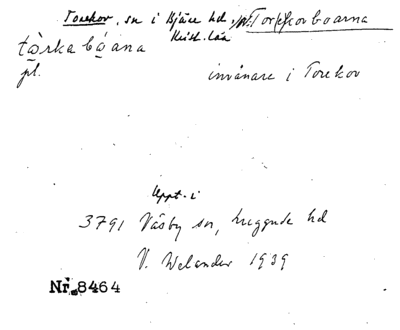 Torekov, sn i Bjäre hd, pl. Torekovboarna
Krist. län
tòrka bóana
pl.
invånare i Torekov
Uppt. i
3791 Väsby sn, Luggude hd
V. Welander 1939
Nr. 8464